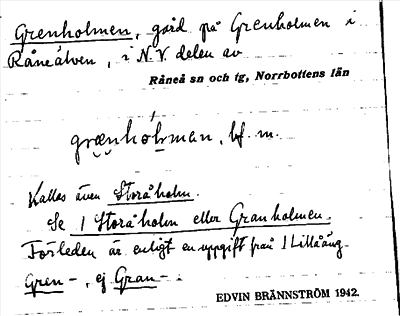 Grenholmen, gård på Grenholmen i
Råneälven, i N.V. delen av
Råneå sn och tg, Norrbottens län
grænhólman, bf. m.
Kallas även Storåholm.
Se 1 Storåholm eller Granholmen.
Förleden är enligt en uppgift från 1 Lillåäng
Gren-, ej Gran-.
EDVIN BRÄNNSTRÖM 1942.